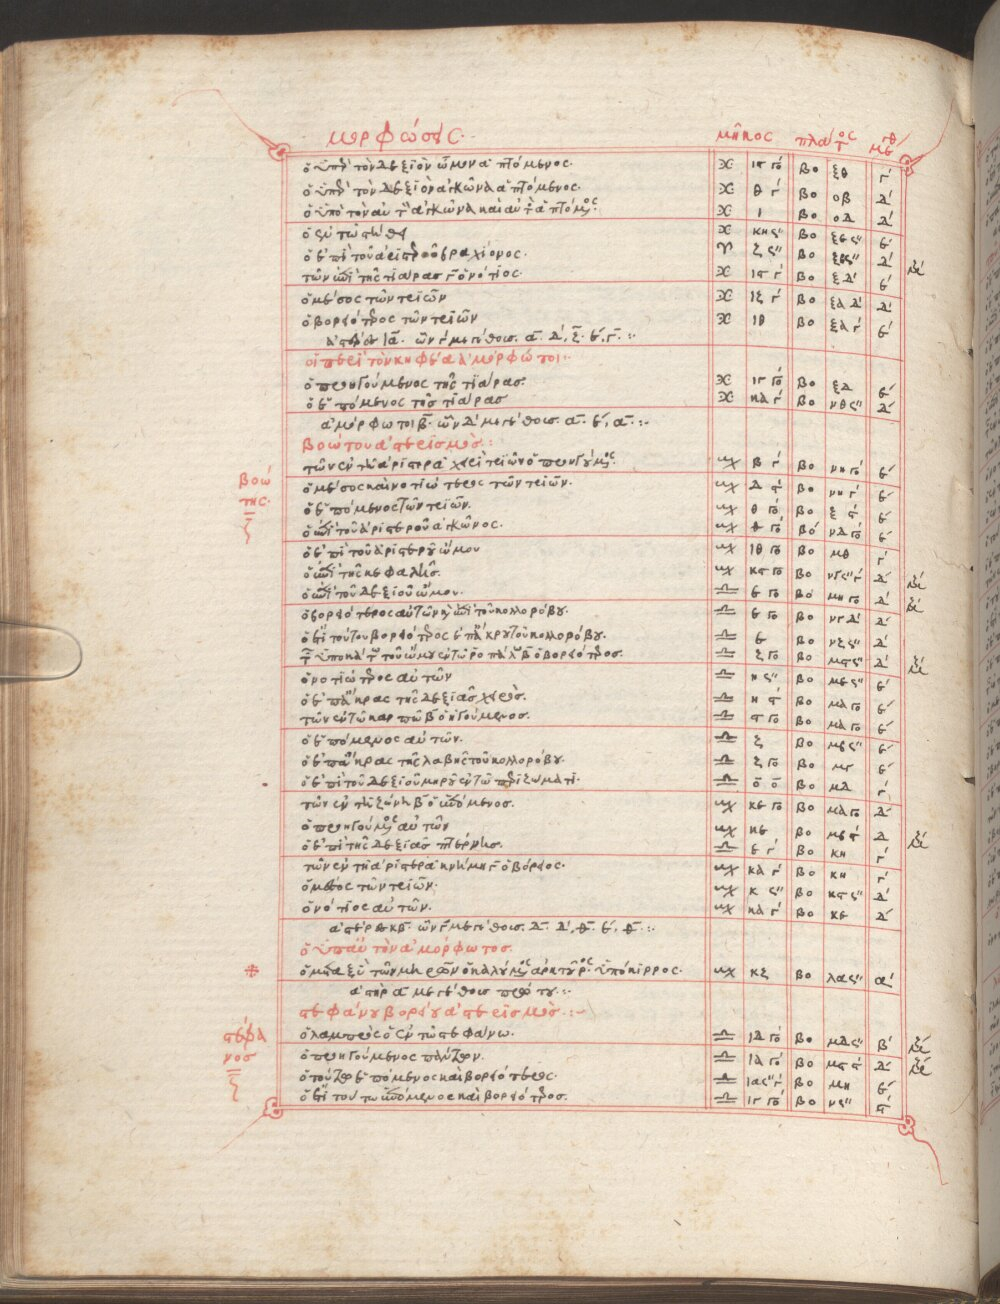 μορφώσεις μῆκος πλάτος μεγέθ
ὁ ὑπὲρ τὸν δεξιὸν ὦμον ἁπτόμενος ιϛ γο βο ξθ γ
ὁ ὑπὲρ τὸν δεξιὸν ἀγκῶνα ἁπτόμενος θ γ βο οβ δ
ὁ ὑπὸ τὸν αὐτὸν ἀγκῶνα καὶ αὐτοῦ ἁπτόμενος ι βο οδ δ
ὁ ἐν τῷ στήθει κη ϛʺ βο ξε ϛʺ ε
ὁ ἐπὶ τοῦ ἀριστεροῦ βραχίονος ζ ϛʺ βο ξβ ϛʺ δ
τῶν ἐπὶ τῆς τιάρας γ ὁ νότιος ιϛ γ βο ξ δ ε
ὁ μέσος τῶν τριῶν ιζ γ βο ξα δ δ
ὁ βορειότερος τῶν τριῶν ιθ βο ξα γ ε
ἀστέρες ια. ὧν γ μεγέθους α. δ, ζ. ε, γ.
οἱ περὶ τὸν κηφέα ἀμόρφωτοι
ὁ προηγούμενος τῆς τιάρας ιγ γο βο ξδ ε
ὁ ἑπόμενος τῆς τιάρας κα γ βο νθ ϛʺ δ
ἀμόρφωτοι β. ὧν δ μεγέθους α. ε, α.
βοώτου ἀστερισμός
τῶν ἐν τῇ ἀριστερᾷ χειρὶ τριῶν ὁ προηγούμενος β γ βο νη γο ε
βοώ
της
ὁ μέσος καὶ νοτιώτερος τῶν τριῶν δ ϛ βο νη γ ε
ὁ ἑπόμενος τῶν τριῶν θ γο βο ξ ϛ ε
ὁ ἐπὶ τοῦ ἀριστεροῦ ἀγκῶνος θ γο βο νδ γο ε
ὁ ἐπὶ τοῦ ἀριστεροῦ ὤμου ιθ γο βο μθ γ
ὁ ἐπὶ τῆς κεφαλῆς κϛ γο βο νγ ϛʺ γ δ
ὁ ἐπὶ τοῦ δεξιοῦ ὤμου ε γο βο μη γο δ
ὁ βορειότερος αὐτῶν καὶ ἐπὶ τοῦ κολλορόβου ε γο βο νγ δ δ
ὁ ἔτι τούτου βορειότερος ἐπ' ἄκρου τοῦ κολλορόβου ε βο νζ ϛʺ δ
τῶν ὑπὸ κάτω τοῦ ὤμου ἐν τῷ ροπάλῳ β ὁ βορειότερος ζ γο βο μϛ ϛʺ δ
ὁ νοτιώτερος αὐτῶν η ϛʺ βο με ϛʺ ε
ὁ ἐπ' ἄκρας τῆς δεξιᾶς χειρός η ϛ βο μα γο ε
τῶν ἐν τῷ καρπῷ β ὁ ἡγούμενος ϛ γο βο μα γο ε
ὁ ἑπόμενος αὐτῶν ζ βο μβ ϛʺ ε
ὁ ἐπ' ἄκρας τῆς λαβῆς τοῦ κολλορόβου ζ γο βο μγ ε
ὁ ἐπὶ τοῦ δεξιοῦ μηροῦ ἐν τῷ περιζώματι ο ο βο μδ γ
τῶν ἐν τῇ ζώνῃ β ὁ ἑπόμενος κε γο βο μα γο δ
ὁ προηγούμενος αὐτῶν κε βο με ϛ δ
ὁ ἐπὶ τῆς δεξιᾶς πτέρνης ε γ βο κη γ
τῶν ἐν τῇ ἀριστερᾷ κνήμῃ γ ὁ βόρειος κα γ βο κη γ
ὁ μέσος τῶν τριῶν κ ϛʺ βο κϛ ϛʺ δ
ὁ νότιος αὐτῶν κα γ βο κε δ
ἀστέρες κβ. ὧν γ μεγέθους δ. δ, θ. ε, θ.
ὁ ὑπ' αὐτὸν ἀμόρφωτος
ὁ μεταξὺ τῶν μηρῶν ὁ καλούμενος ἀρκτοῦρος ὑπόκιρρος κζ βο λα ϛʺ α
ἀστὴρ α μεγέθους πρώτου
στεφάνου βορείου ἀστερισμός
στέφα
νος
ὁ λαμπρὸς ὁ ἐν τῷ στεφάνῳ ιδ γο βο μδ ϛʺ β
ὁ προηγούμενος πάντων ια γο βο μϛ ϛ δ
ὁ τούτῳ ἑπόμενος καὶ βορειότερος ια ϛʺ γ βο μη ε
ὁ ἔτι τούτῳ ἑπόμενος καὶ βορειότερος ιγ γο βο ν ϛʺ ϛ